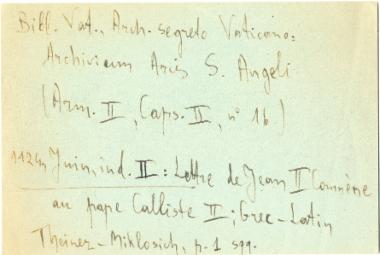 Bibl. Vat., Arch. segreto Vaticano:
Archivium Arcis S. Angeli
(Arm. II, Caps. II, n° 16)
1124, Juin, ind. II: Lettre de Jean II Comnène
au pape Calliste II; Grec-Latin
Theiner-Miklosich, p. 1 sqq.